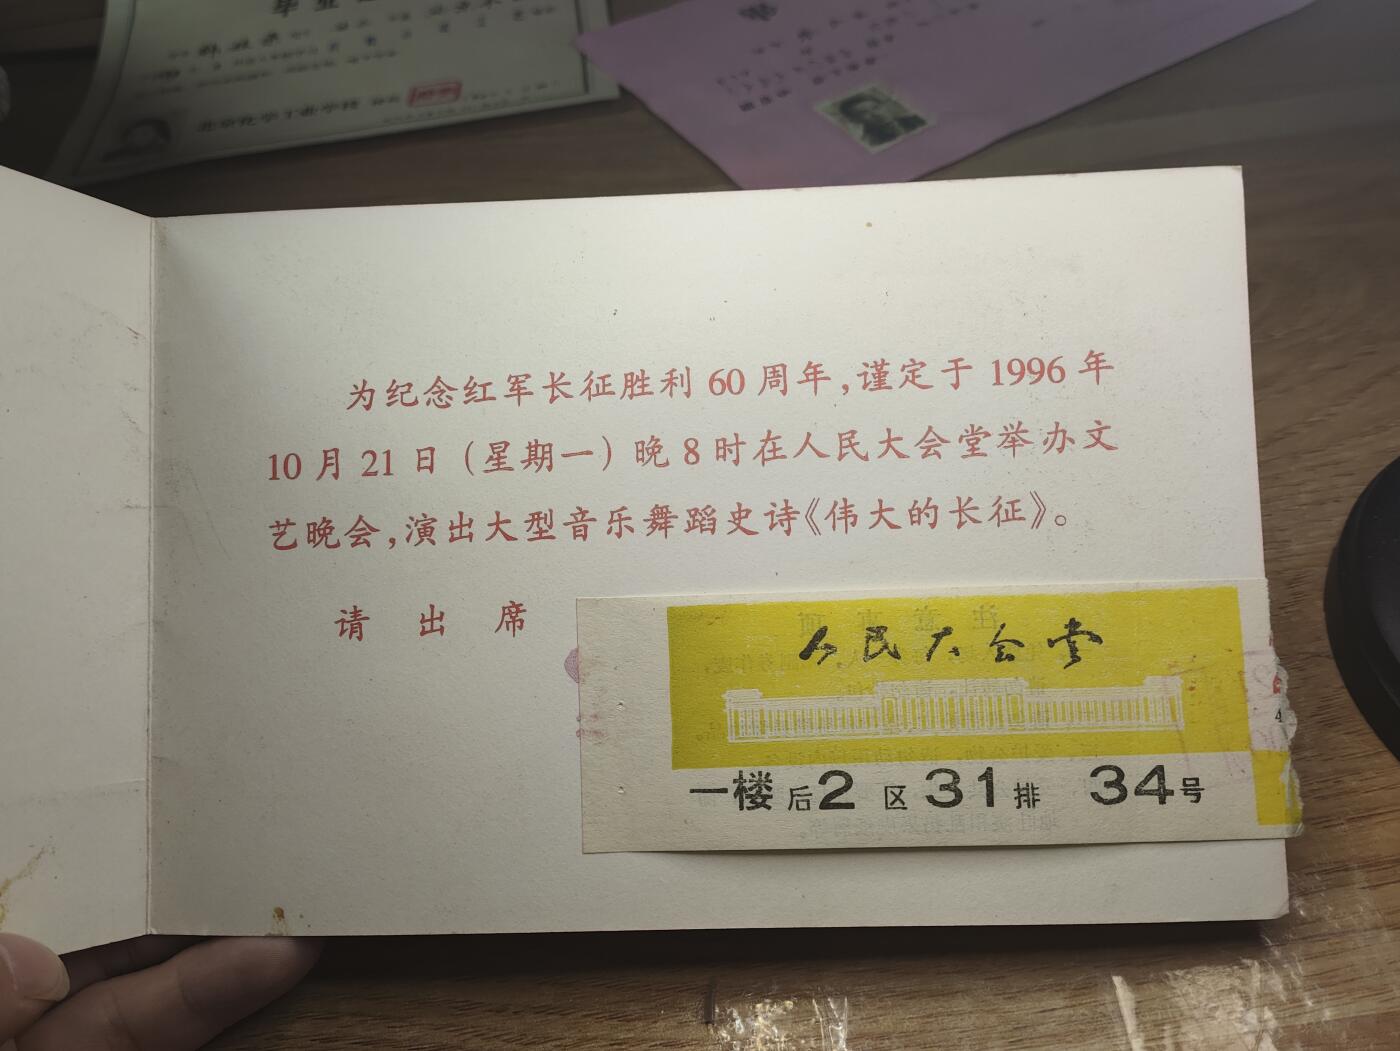 毕业
北京化学工业学校
为纪念红军长征胜利 60 周年，谨定于 1996 年
10 月 21 日（星期一）晚 8 时在人民大会堂举办文
艺晚会，演出大型音乐舞蹈史诗《伟大的长征》。
请 出 席
人民大会堂
一楼 后 2 区 31 排 34 号